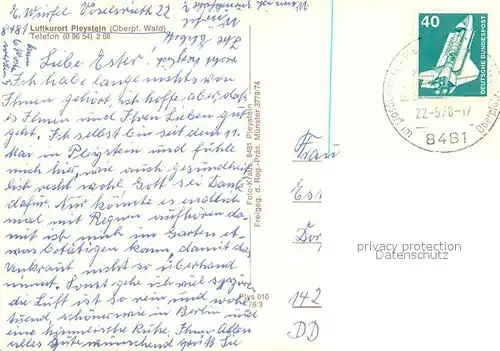 E. Würfel Vöselsrieth 22
8481
Luftkurort Pleystein (Oberpf. Wald)
Telefon (0 96 54) 2 68
Liebe Ester.
Ich habe lange nichts von
Ihnen gehört, ich hoffe aber, daß
es Ihnen und Ihren Lieben gut
geht. Ich selbst bin seit dem 11.
Mai in Pleystein und fühle
mich hier, wie auch gesundheit
lich recht wohl Gott sei Dank
dafür. Nur könnte es endlich
mal mit Regnen aufhören da-
mit ich mich im Garten et-
was betätigen kann damit das
Unkraut nicht so überhand
nimmt. Sonst gehe ich viel spazieren
die Luft ist so rein und wohl
tuend, schöner wie in Berlin und
eine himmlische Ruhe. Ihnen Allen
alles Gute wünschend grüßt Sie
Foto-Kraus, 8481 Pleystein
Freigeg. d. Reg.-Präs. Münster 3778/74
Plys 010
78/3
40
DEUTSCHE BUNDESPOST
22.-5.78-17
8481
Frau
Es
Do
142
DD
privacy protection
Datenschutz